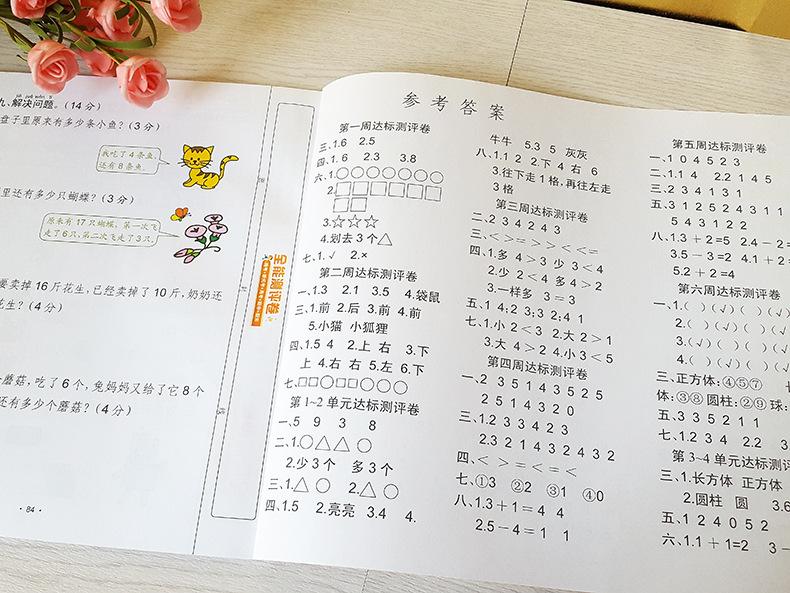 九、解决问题。(14分)
盘子里原来有多少条小鱼?(3分)
我吃了4条鱼,
还有8条鱼.
里还有多少只蝴蝶?(3分)
原来有17只蝴蝶,第一次飞
走了6只,第二次飞走了3只.
要卖掉16斤花生,已经卖掉了10斤,奶奶还
花生?(4分)
蘑菇,吃了6个,兔妈妈又给了它8个
还有多少个蘑菇?(4分)
· 84 ·
全能测评卷
参考答案
第一周达标测评卷
三、1.6 2.5
四、1.6 2.3 3.8
六、1.○○○○○○○○
2.□□□□□□
□□
3.☆☆☆
4.划去3个△
七、1.√ 2.×
第二周达标测评卷
一、1.3 2.1 3.5 4.袋鼠
三、1.前 2.后 3.前 4.前
5.小猫 小狐狸
四、1.5 4 2.上 右 3.下
上 4.右 右 5.左 6.下
七、□□○□□○○○○
第1~2单元达标测评卷
一、5 9 3 8
二、1.○△△○
2.少3个 多3个
三、1.△○ 2.△○
四、1.5 2.亮亮 3.4 4.
牛牛 5.3 5 灰灰
八、1.1 2 2.下 4 右 6
3.往下走1格,再往左走
3格
第三周达标测评卷
二、2 3 4 2 4 3
三、< > = > > < < =
四、1.多 4>3 少 3<4
2.少 2<4 多 4>2
3.一样多 3=3
五、1 4;2 3;3 2;4 1
七、1.小 2<3 2.大 2>1
3.大 4>2 4.小 3<5
第四周达标测评卷
一、2 3 5 1 4 3 5 2 5
2 5 1 4 3 2 0
三、1.2 3 3 4 2 3
2.3 2 1 4 3 2 4 3 2
四、< > = < = <
七、①3 ②2 ③1 ④0
八、1.3+1=4 4
2.5-4=1 1
第五周达标测评卷
一、1 0 4 5 2 3
二、1.1 4 2.2 1 4 5
三、2 3 4 1 3 1
五、3 1 2 5 2 4 3 1 1
5 4 3 1 2 2
八、1.3+2=5 2.4-2=
3.1+3=4 4.
5.2+2=4
第六周达标测评卷
一、1.( )(√)( )(√)
2.(√)( )(√)( )
3.( )(√)( )(√)
4.( )(√)(√)( )
三、正方体:④⑤⑦
体:③⑧ 圆柱:②⑨ 球:
五、3 3 5 2 1 1
七、1.2 3 4 2.2 3.
第3~4单元达标测评
三、1.长方体 正方体
2.圆柱 圆 3.6
五、1 2 4 0 5 2
六、1.1+1=2 3-